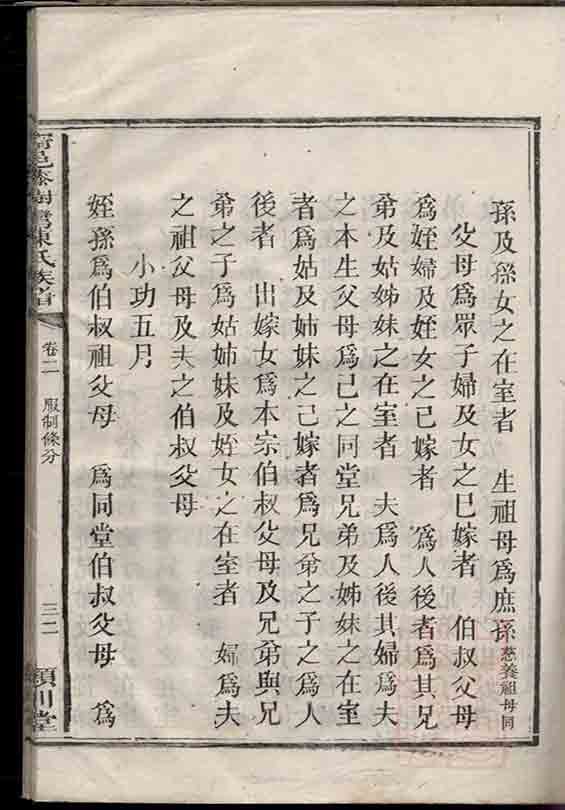 孫及孫女之在室者　生祖母爲庶孫慈養祖母同
父母爲眾子婦及女之已嫁者　伯叔父母
爲姪婦及姪女之已嫁者　爲人後者爲其兄
弟及姑姊妹之在室者　夫爲人後其婦爲夫
之本生父母爲己之同堂兄弟及姊妹之在室
者爲姑及姉妹之己嫁者爲兄弟之子之爲人
後者　出嫁女爲本宗伯叔父母及兄弟與兄
弟之子爲姑姉妹及姪女之在室者　婦爲夫
之祖父母及夫之伯叔父母
小功五月
姪孫爲伯叔祖父母　爲同堂伯叔父母　爲
邑樹灣陳氏族譜
卷二
服制條分
三二
潁川堂